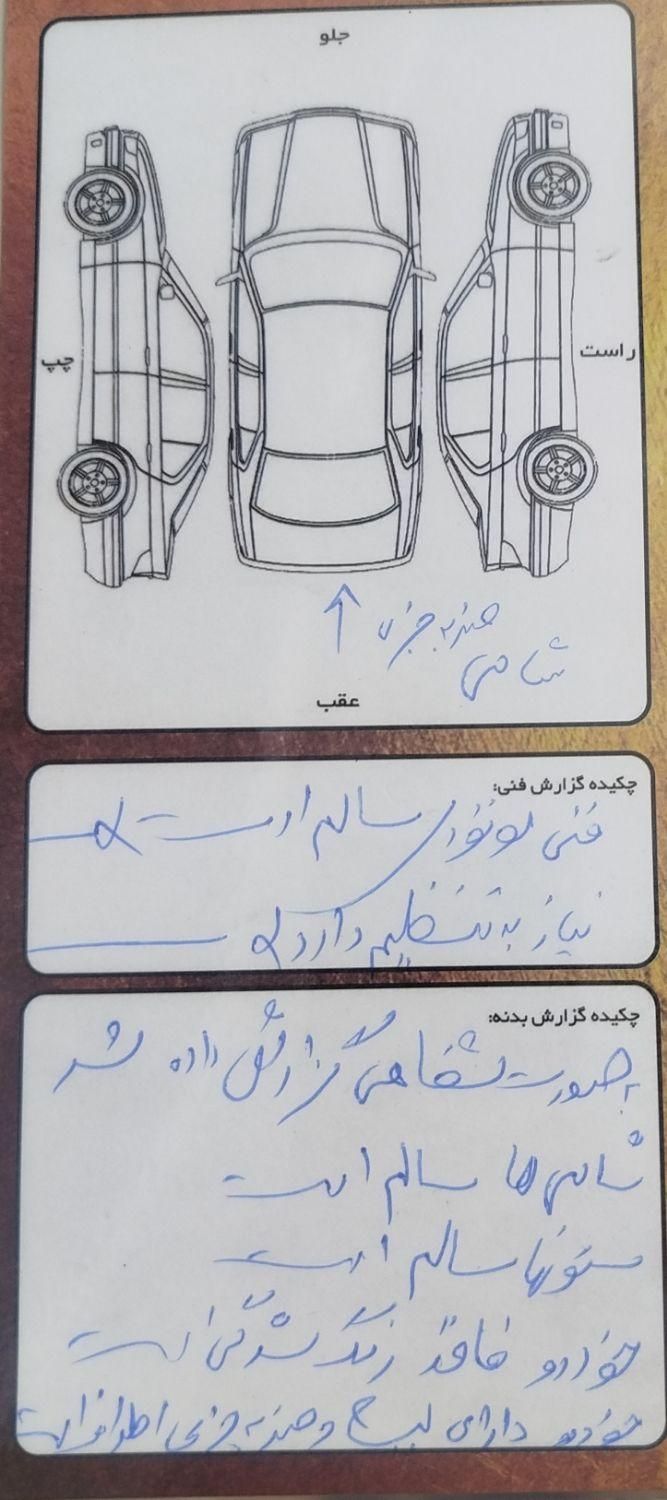 جلو
چپ
راست
ضربه جزیی
شاسی
عقب
چکیده گزارش فنی:
فنی موتوری سالم است
نیاز به تنظیم دارد
چکیده گزارش بدنه:
به صورت شفاهی گزارش داده شد
شاسی ها سالم است
ستونها سالم است
خودرو فاقد رنگ شدگی است
خودرو دارای لیسه و ضربه جزیی اطراف است